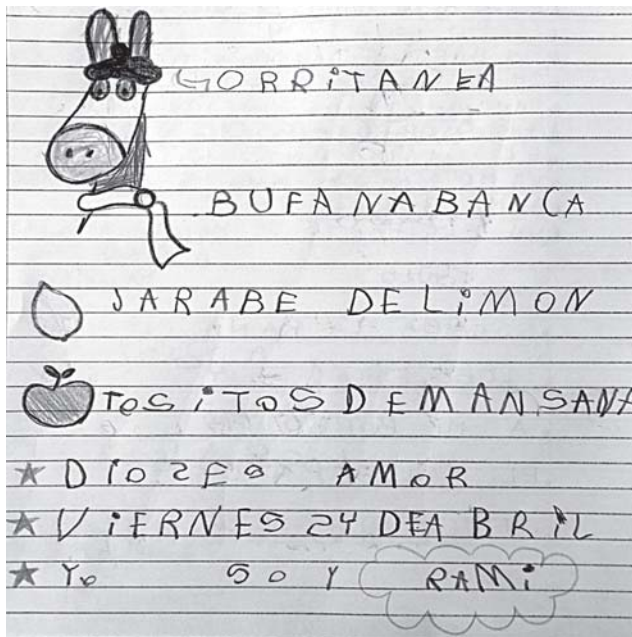 GORRiTANEA
BUFANABANCA
JARABE DELiMON
TOSiTOS DEMANSANA
DiOSES AMOR
ViERNES 24 DEABRiL
Yo SOY RAMi